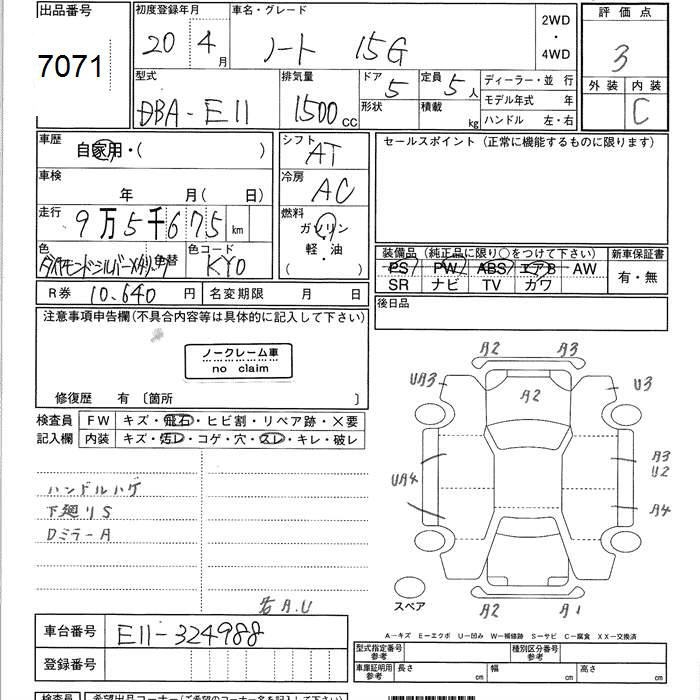 出品番号
7071
初度登録年月 20 4月
車名・グレード ノート 15G
2WD・4WD
評価点 3
外装 内装 C
型式 DBA-E11
排気量 1500cc
ドア 5 形状
定員 5人 積載 kg
ディーラー・並行
モデル年式 年
ハンドル 左・右
車歴 自家用・( )
シフト AT
セールスポイント (正常に機能するものに限ります)
車検 年 月( 日)
冷房 AC
走行 9万5千675km
燃料 ガソリン 軽・油 ( )
色 ダイヤモンドシルバーメタリック 色替
色コード KY0
装備品 (純正品に限り○をつけて下さい)
PS PW ABS エアB AW
SR ナビ TV カワ
新車保証書 有・無
R券 10,640円
名変期限 月 日
後日品
注意事項申告欄(不具合内容等は具体的に記入して下さい)
ノークレーム車
no claim
修復歴 有〔箇所 〕
検査員記入欄
FW キズ・飛石・ヒビ割・リペア跡・×要
内装 キズ・汚レ・コゲ・穴・スレ・キレ・破レ
A2 A3
UA3 A2 U3
A3
U2
UA4
A4
A2 A1
ハンドルハゲ
下廻りS
DミラーA
各A.U
スペア
A-キズ E-エクボ U-凹み W-補修跡 S-サビ C-腐食 XX-交換済
車台番号 E11-324988
登録番号
型式指定番号 参考
種別区分番号 参考
車庫証明用 参考 長さ cm 幅 cm 高さ cm
検査員
希望出品コーナー(ご希望のコーナー名を記入して下さい)